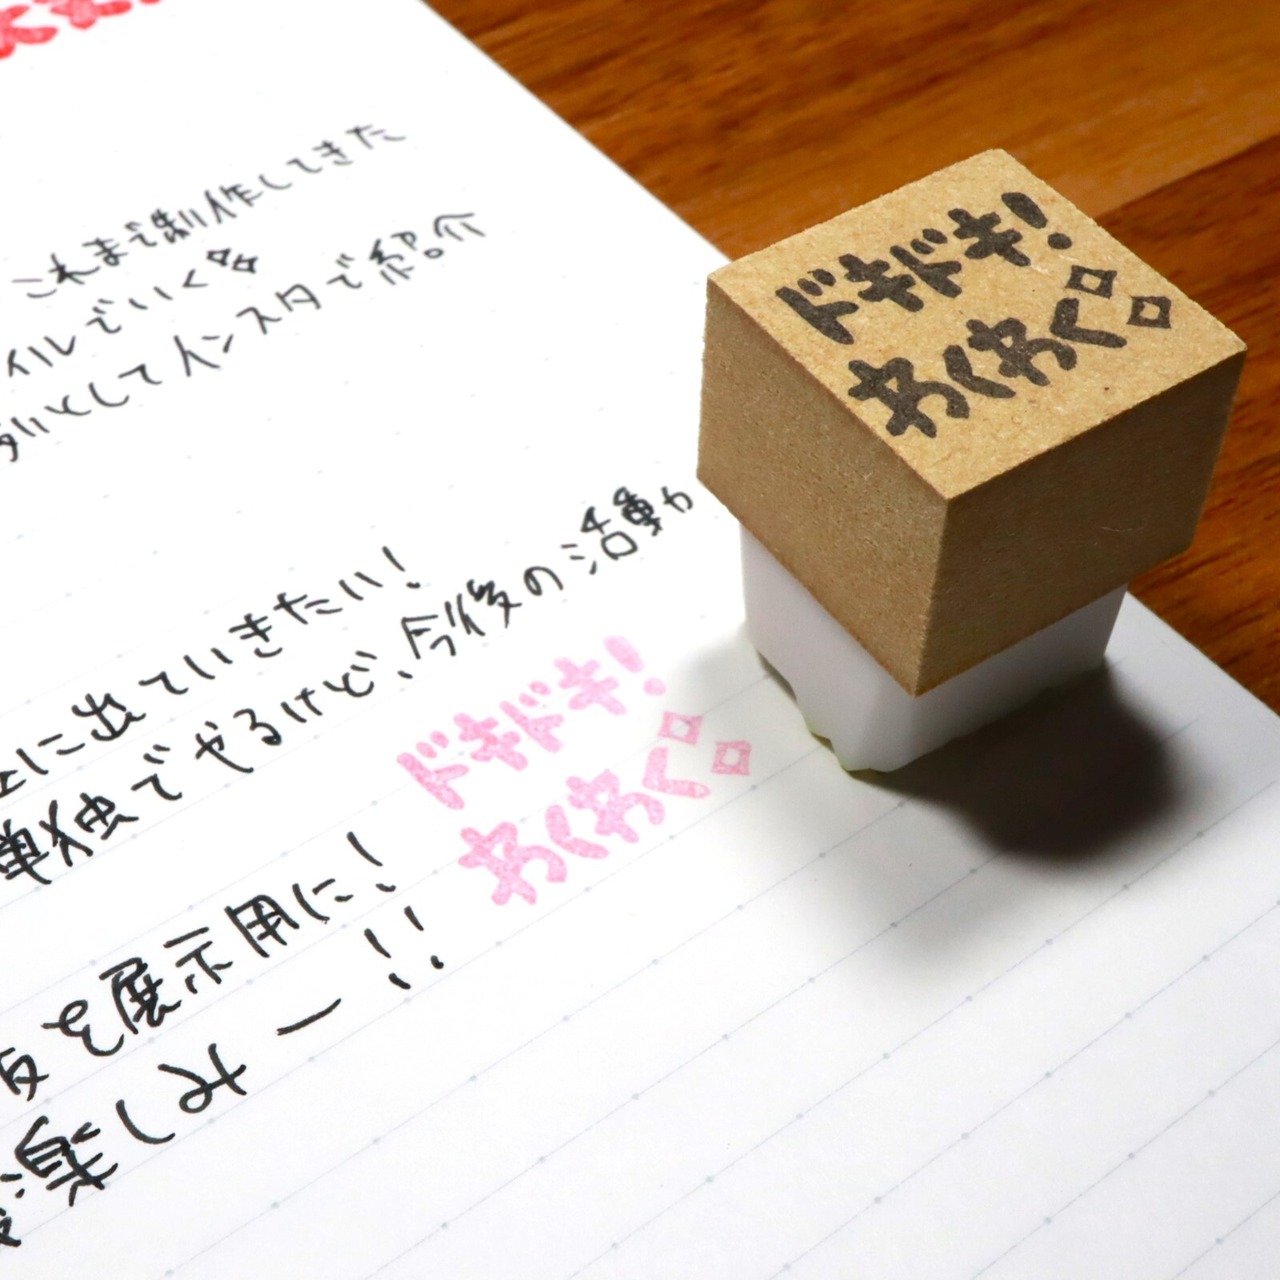 これまで制作してきた
イルでいく
いとしてインスタで紹介
に出ていきたい!
単独でやるけど、今後の活動
を展示用に!
楽しみー!!
ドキドキ!
わくわく
ドキドキ!
わくわく